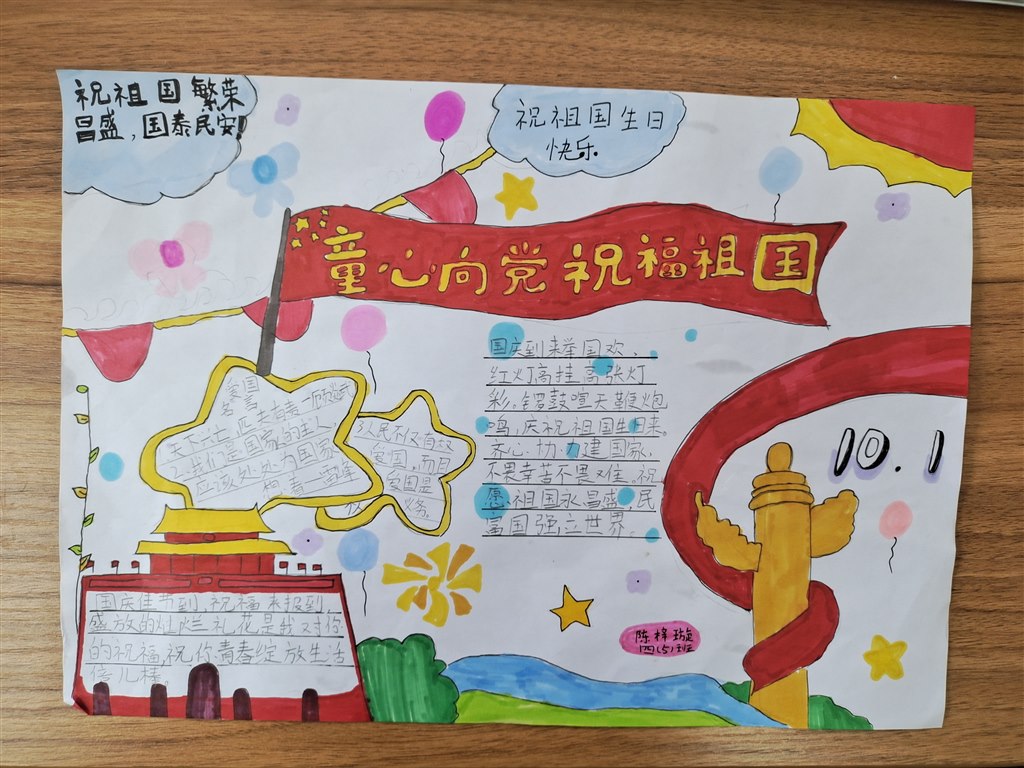 祝祖国繁荣
昌盛,国泰民安!
祝祖国生日
快乐
童心向党祝福祖国
国庆到来举国欢,
红灯高挂高张灯
彩。锣鼓喧天鞭炮
鸣,庆祝祖国生日来。
齐心协力建国家,
不畏幸苦不畏难。祝
愿祖国永昌盛,民
富国强立世界。
10.1
爱国
名言
天下兴亡,匹夫有责—顾炎武
2.我们是国家的主人
应该处处为国家
着—雷锋
3.人民不仅有权
爱国,而且
爱国是
义务
国庆佳节到,祝福来报到,
盛放的灿烂礼花是我对你
的祝福,祝你青春绽放生活
倍儿棒。
陈梓璇
四(5)班